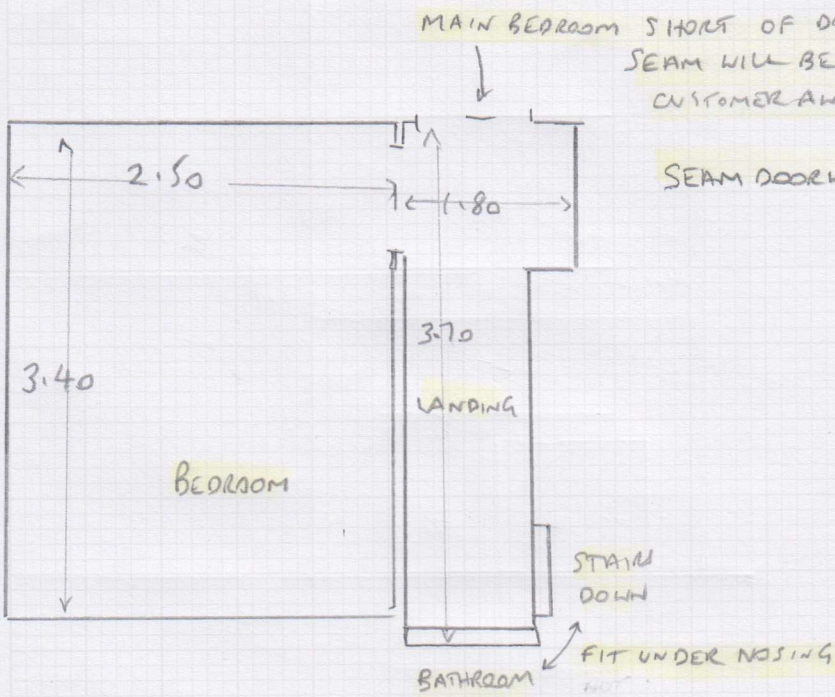 MAIN BEDROOM SHORT OF
SEAM WILL BE
CUSTOMER
2.50
1.80
SEAM
3.70
3.40
LANDING
BEDROOM
STAIRS
DOWN
FIT UNDER NOSING
BATHROOM